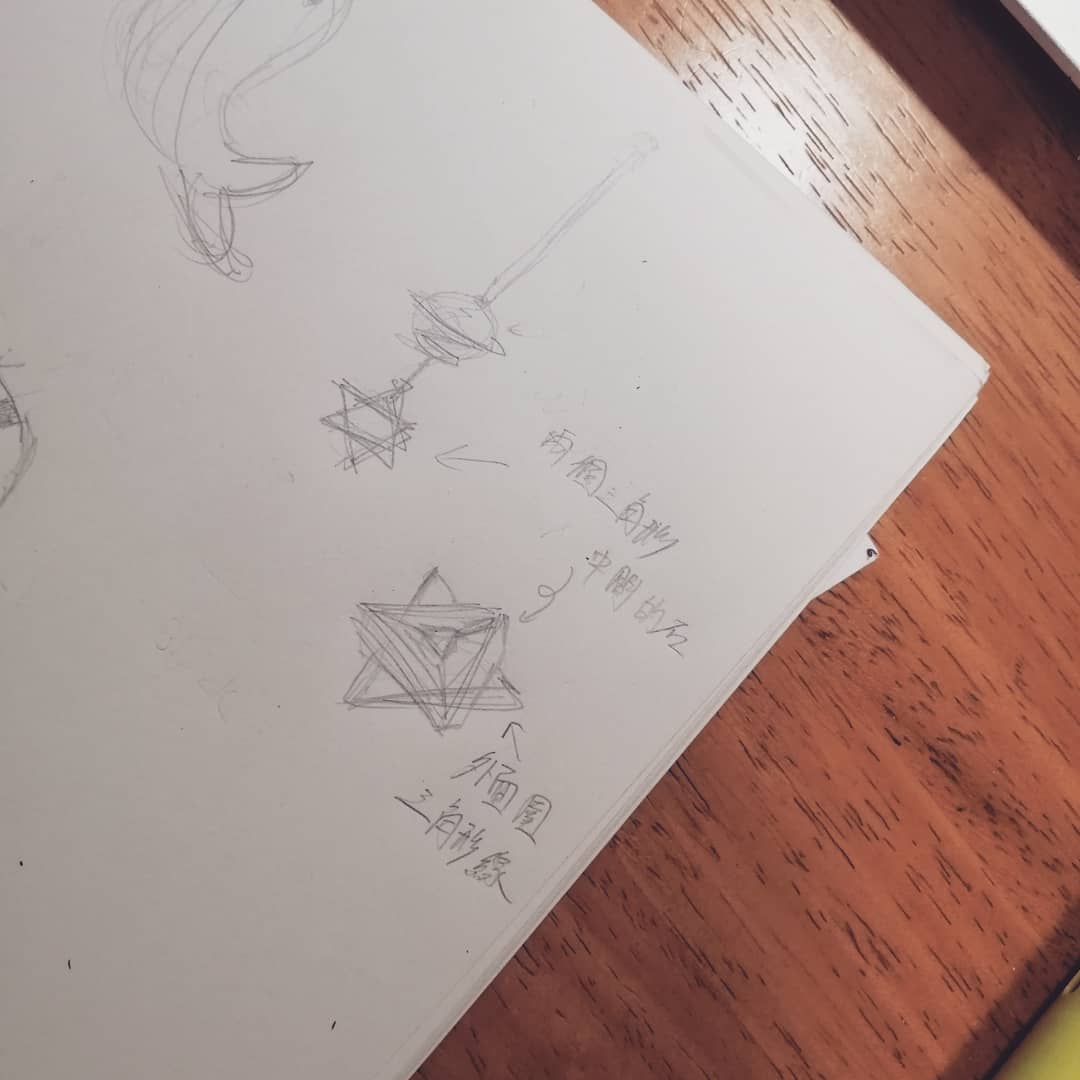 兩個三角形
中間的石
外面圍
三角形線